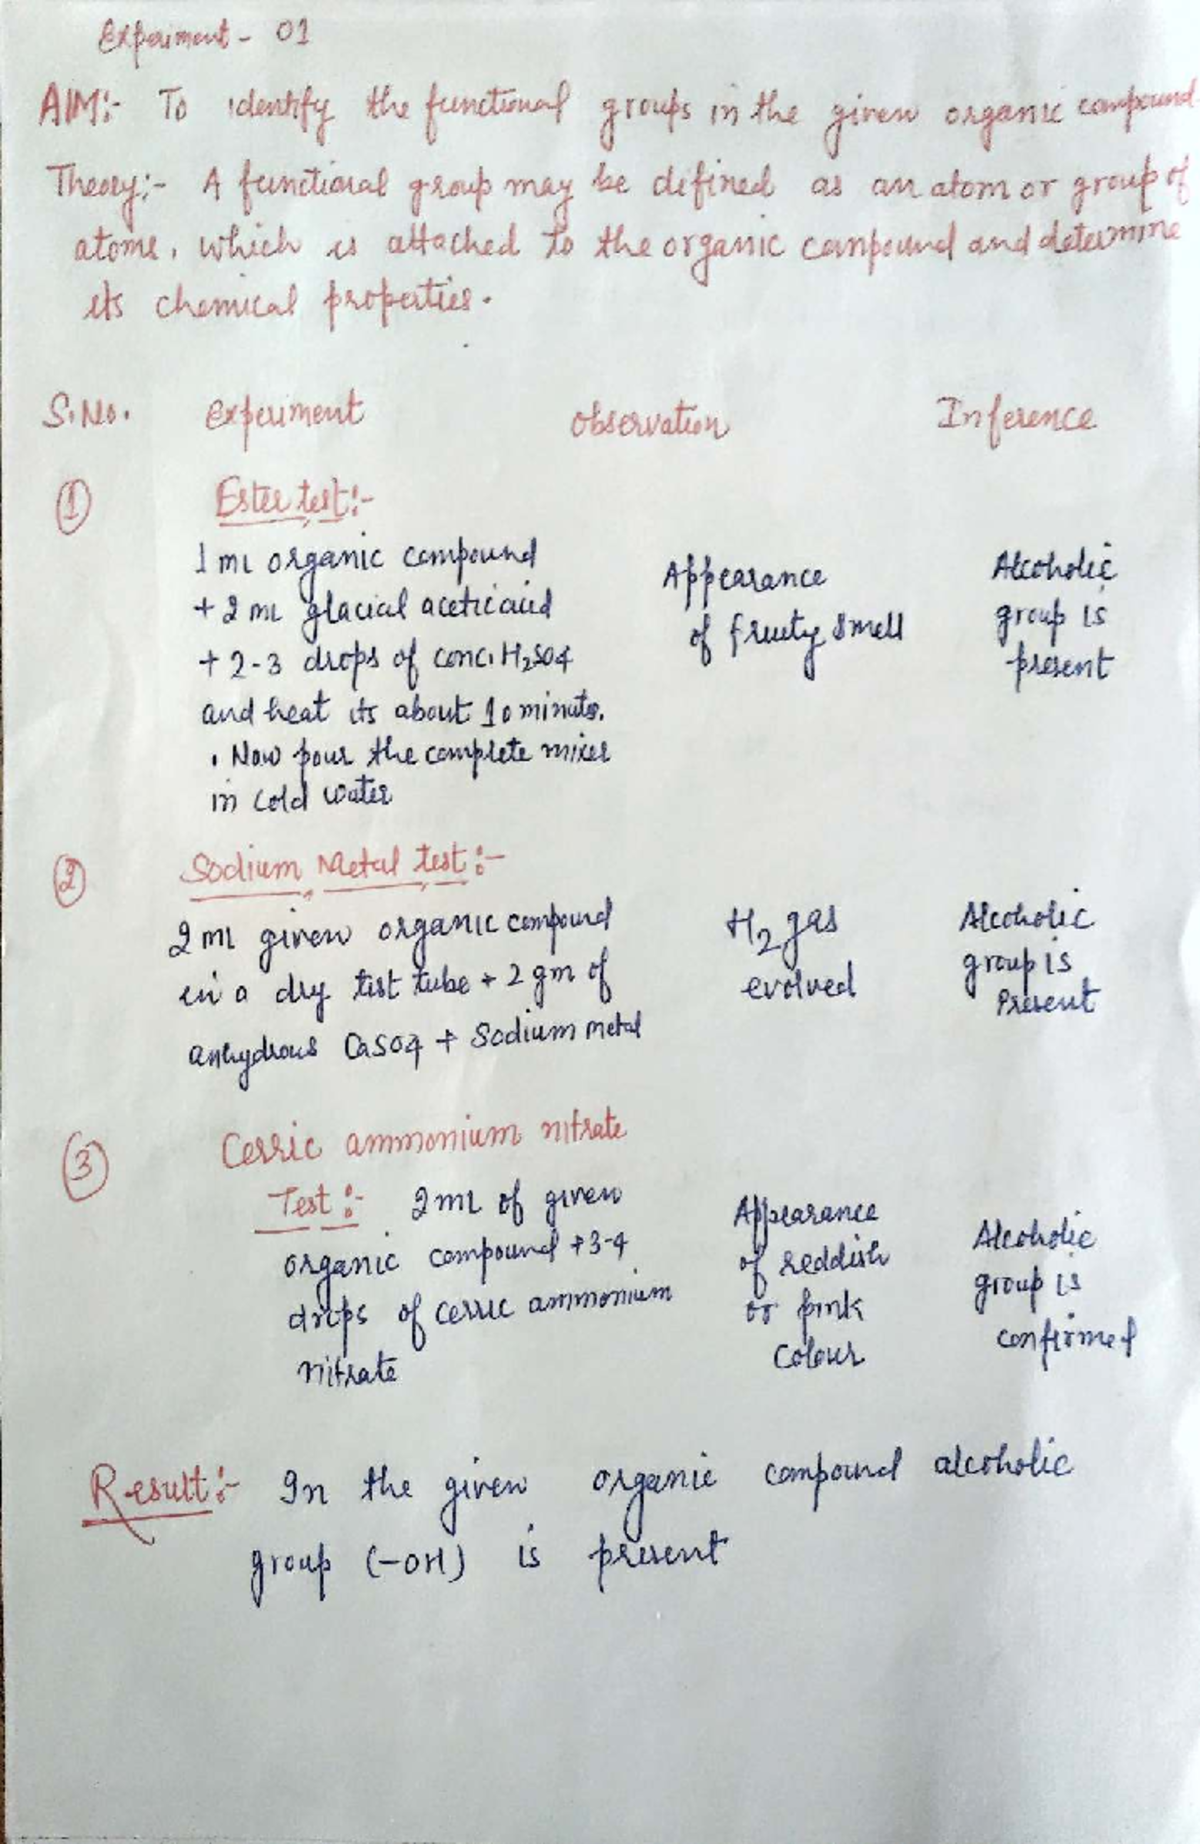 Experiment - 01
AIM:- To identify the functional groups in the given organic compound
Theory:- A functional group may be defined as an atom or group of
atoms, which is attached to the organic compound and determine
its chemical properties.
S.No. Experiment Observation Inference
① Ester test:-
1 ml organic compound
+ 2 ml glacial acetic acid
+ 2-3 drops of conc. H2SO4
and heat its about 10 minuts.
. Now pour the complete mixer
in cold water
Appearance
of fruity smell
Alcoholic
group is
present
② Sodium Metal test:-
2 ml given organic compound
in a dry test tube + 2 gm of
anhydrous CaSO4 + Sodium metal
H2 gas
evolved
Alcoholic
group is
Present
③ Cerric ammonium nitrate
Test:- 2 ml of given
organic compound + 3-4
drops of cerric ammonium
nitrate
Appearance
of reddish
or pink
Colour
Alcoholic
group is
confirmed
Result:- In the given organic compound alcoholic
group (-OH) is present